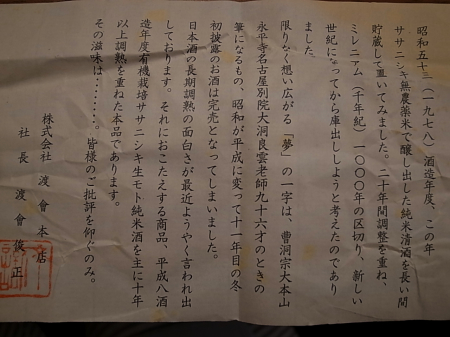 昭和五十三(一九七八)酒造年度、この年
ササニシキ無農薬米で醸し出した純米清酒を長い間
貯蔵して置いてみました。二十年間調整を重ね、
ミレニアム(千年紀)一〇〇〇年の区切り、新しい
世紀になってから庫出ししようと考えたのであり
ました。
限りなく想い広がる「夢」の一字は、曹洞宗大本山
永平寺名古屋別院大洞良雲老師九十六才のときの
筆になるもの、昭和が平成に変って十一年目の冬
初披露のお酒は完売となってしまいました。
日本酒の長期調熟の面白さが最近ようやく言われ出
しております。それにおこたえする商品、平成八酒
造年度有機栽培ササニシキ生モト純米酒を主に十年
以上調熟を重ねた本品であります。
その滋味は・・・・・・・。
皆様のご批評を仰ぐのみ。
株式会社 渡會本店
社長 渡會俊正